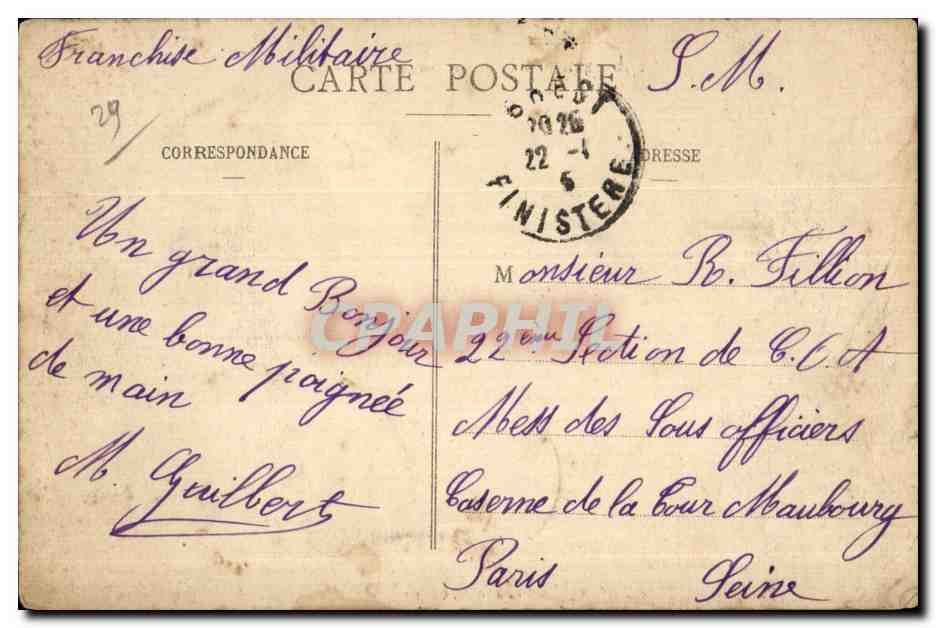 Franchise Militaire
S. M.
CARTE POSTALE
29
BREST
20 26
22 -1
5
FINISTERE
CORRESPONDANCE
ADRESSE
Un grand Bonjour
et une bonne poignée
de main
M. Guilbert
Monsieur R. Fillion
22ème Section de C.O.A
Mess des Sous officiers
Caserne de la Tour Maubourg
Paris Seine
CPAPHIL